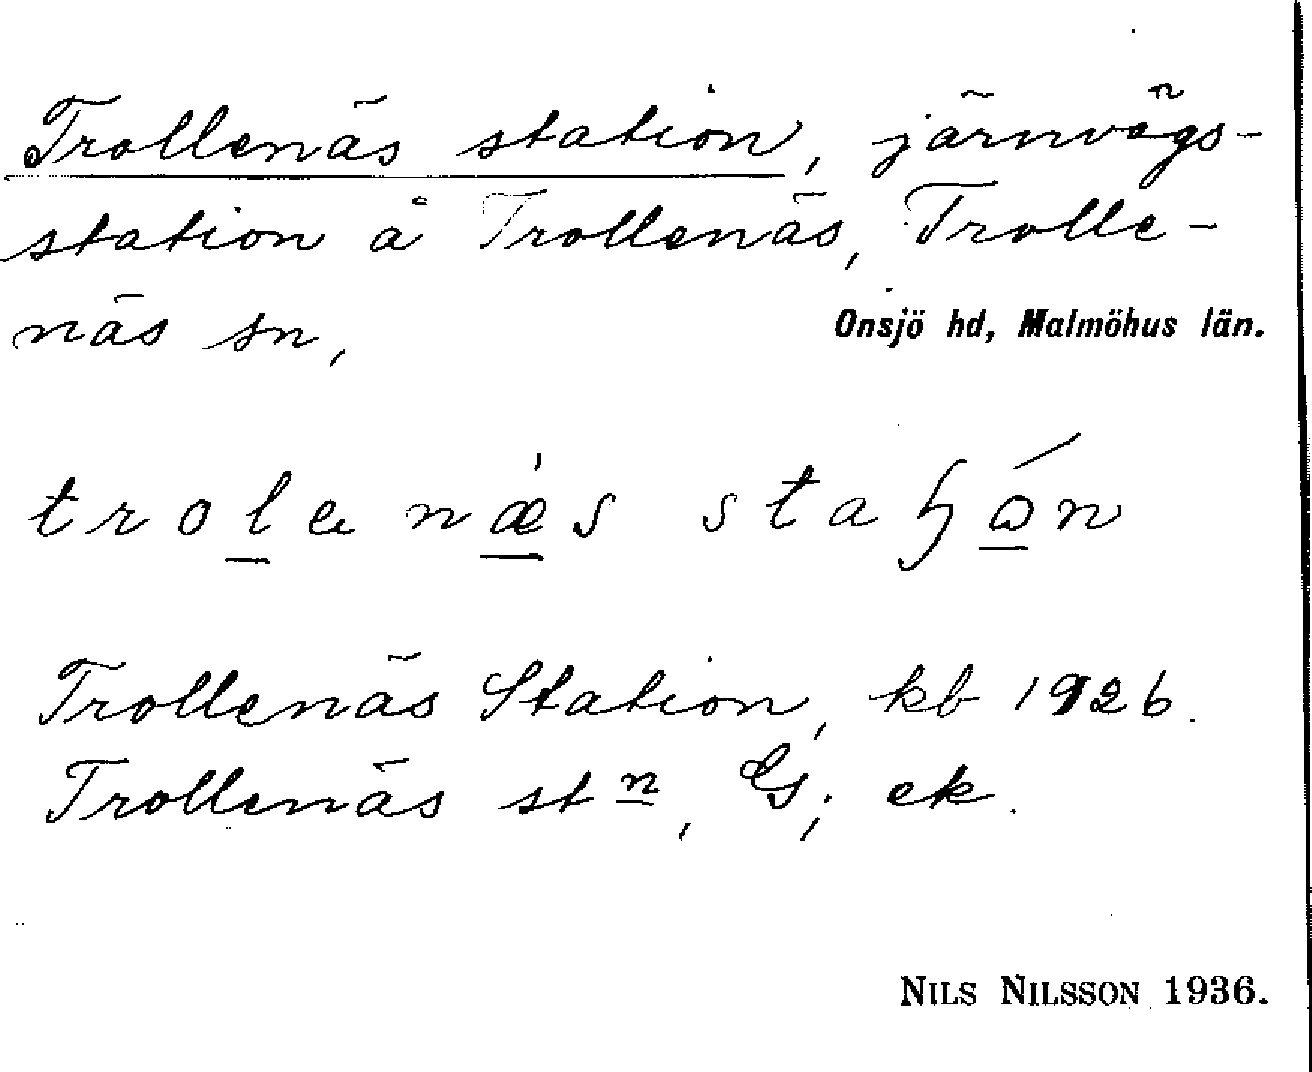 Trollenäs station, järnvägs-
station å Trollenäs, Trolle-
näs sn, Onsjö hd, Malmöhus län.
trolenæ̀s staɧón
Trollenäs Station, kb 1926.
Trollenäs stn, GS; ek.
NILS NILSSON 1936.